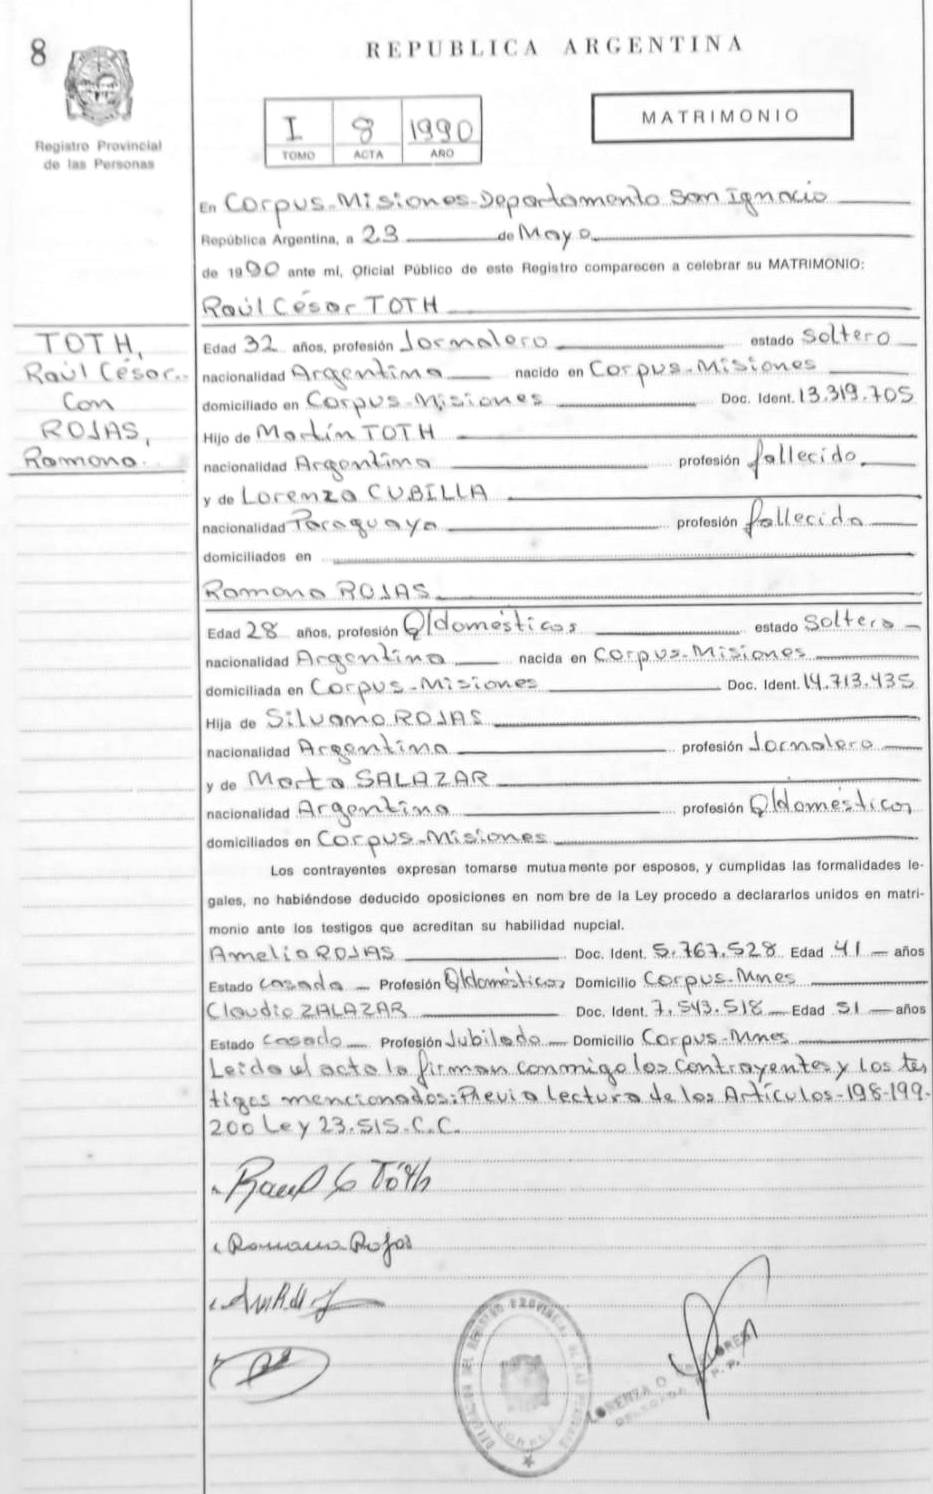 8
REPUBLICA ARGENTINA
Registro Provincial
de las Personas
I 8 1990
TOMO ACTA AÑO
MATRIMONIO
En Corpus-Misiones-Departamento San Ignacio
República Argentina, a 23 de Mayo
de 1990 ante mí, Oficial Público de este Registro comparecen a celebrar su MATRIMONIO:
Raúl César TOTH
TOTH,
Raúl César
Con
ROJAS,
Ramona
Edad 32 años, profesión Jornalero estado Soltero
nacionalidad Argentina nacido en Corpus-Misiones
domiciliado en Corpus-Misiones Doc. Ident. 13.319.705
Hijo de Martín TOTH
nacionalidad Argentina profesión fallecido
y de Lorenza CUBILLA
nacionalidad Paraguaya profesión fallecida
domiciliados en
Ramona ROJAS
Edad 28 años, profesión Q/domésticos estado Soltera
nacionalidad Argentina nacida en Corpus-Misiones
domiciliada en Corpus-Misiones Doc. Ident. 14.713.435
Hija de Silvano ROJAS
nacionalidad Argentina profesión Jornalero
y de Marta SALAZAR
nacionalidad Argentina profesión Q/domésticos
domiciliados en Corpus-Misiones
Los contrayentes expresan tomarse mutuamente por esposos, y cumplidas las formalidades le-
gales, no habiéndose deducido oposiciones en nom bre de la Ley procedo a declararlos unidos en matri-
monio ante los testigos que acreditan su habilidad nupcial.
Amelia ROJAS Doc. Ident. 5.767.528 Edad 41 años
Estado Casada Profesión Q/domésticos Domicilio Corpus-Mnes
Claudio ZALAZAR Doc. Ident. 7.543.518 Edad 51 años
Estado Casado Profesión Jubilado Domicilio Corpus-Mnes
Leida el acta la firman conmigo los contrayentes y los tes
tigos mencionados: Previa lectura de los Artículos-198-199-
200 Ley 23.515.C.C.
Raul C Tóth
Ramona Rojas
LORENZA